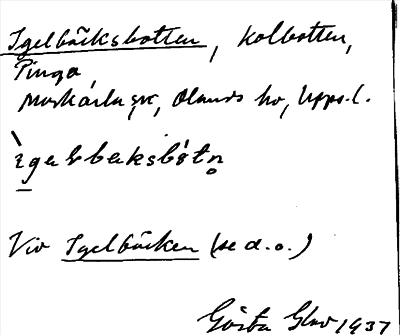 Igelbäcksbotten, kolbotten,
Pinga,
Morkarla sn, Olands hd, Upps.l.
ìgəlbeksbòtn̥
Vid Igelbäcken (se d.o.)
Gösta 1937